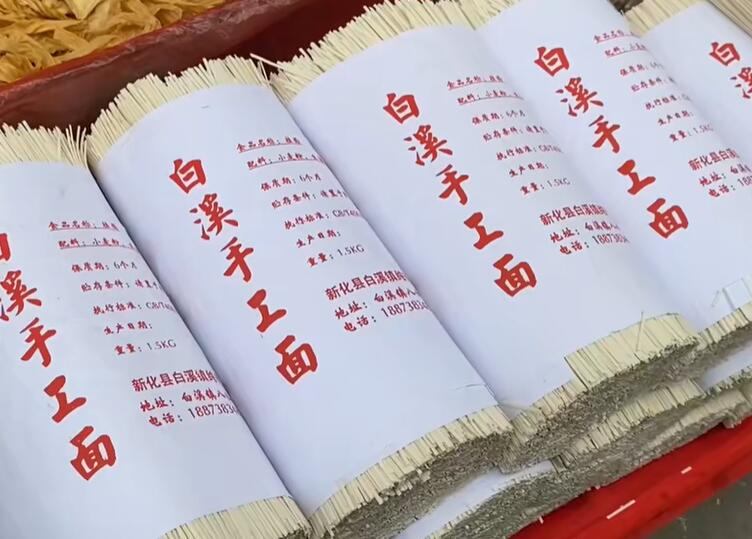 白溪手工面
配料：小麦粉
保质期：6个月
贮存条件：
执行标准：GB/T
生产日期：
重量：1.5KG
新化县白溪镇
地址：白溪镇
电话：188738
白溪手工面
食品名称：
配料：小麦粉
保质期：6个月
贮存条件：
执行标准：GB/T
生产日期：
重量：1.5KG
新化县白溪镇
地址：白溪镇
电话：188738
白溪手工面
食品名称：
配料：小麦粉
保质期：6个月
贮存条件：
执行标准：GB/T
生产日期：
重量：1.5KG
新化县白溪镇
地址：白溪镇
电话：188738
白溪手工面
食品名称：
配料：小麦粉
保质期：6个月
贮存条件：
执行标准：
生产日期：
重量：1.5KG
新化县
地址：
电话：
白溪